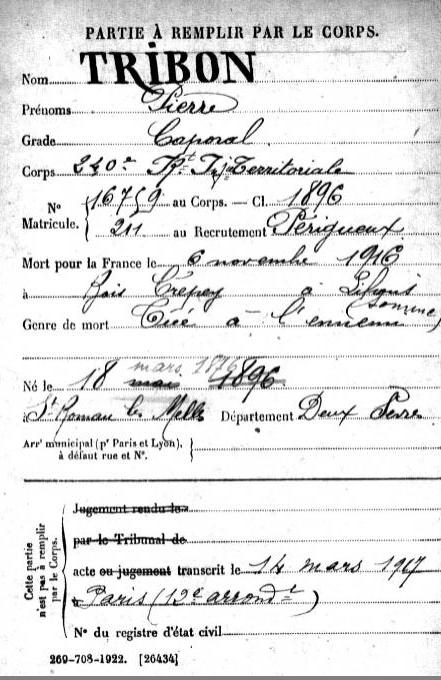 PARTIE À REMPLIR PAR LE CORPS.
Nom TRIBON
Prénoms Pierre
Grade Caporal
Corps 240e Rt Territoriale
No Matricule. { 16759 au Corps. — Cl. 1896
211 au Recrutement Périgueux
Mort pour la France le 6 novembre 1916
à Bois Crépey à Lihons (Somme)
Genre de mort Tué à l'ennemi
mars 1876
Né le 18 mars 1896
à St Roman les Melle Département Deux Sèvre
Arrt municipal (pr Paris et Lyon),
à défaut rue et No.
Cette partie n'est pas à remplir par le Corps.
Jugement rendu le
par le Tribunal de
acte ou jugement transcrit le 14 mars 1917
à Paris (12e arrondt)
No du registre d'état civil
269-708-1922. [26434]